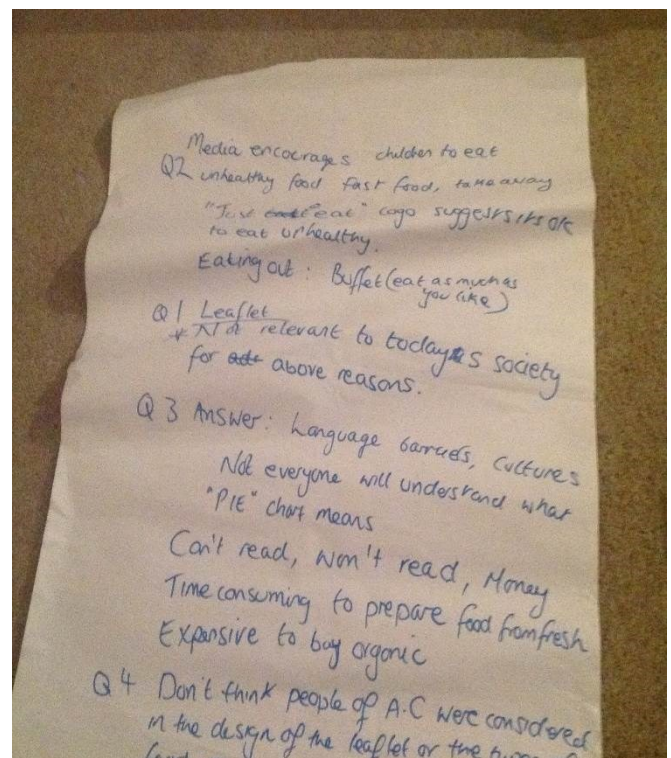 Media encourages children to eat
Q2 unhealthy food fast food, takeaway
"Just eat" logo suggests its ok
to eat unhealthy.
Eating out: Buffet (eat as much as
you like)
Q1 Leaflet
* Not relevant to todays society
for above reasons.
Q3 Answer: Language barriers, cultures
Not everyone will understand what
"PIE" chart means
Can't read, won't read, Money
Time consuming to prepare food from fresh
Expensive to buy organic
Q4 Don't think people of A.C were considered
in the design of the leaflet or the